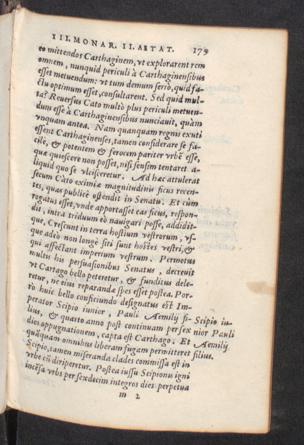 III. MONAR. II. AETAT. 179
eò mittendos Carthaginem, vt explorarent rem
omnem, nunquid periculi à Carthaginensibus
esset metuendum: vt tum demum serrò, quid fa-
ctu optimum esset, consultarent. Sed quid mul-
ta? Reuersus Cato multò plus periculi metuen-
dum esse à Carthaginensibus nunciauit, quàm
vnquam antea. Nam quanquam regnis exuti
essent Carthaginenses, tamen considerare se fa-
cile, & potentem & ferocem pariter vrbē esse,
quæ quiescere non posset, nisi sensim tentaret
liquid quo se vlcisceretur. Ad hæc attulerat
secum Cato eximiæ magnitudinis ficus recen-
tes, quas publicè ostendit in Senatu. Et cùm
rogatus esset, vnde apportasset eas ficus, respon-
dit, intra triduum eò nauigari posse, addidit-
que, Crescunt in terra hostium vestrorum, vs-
que adeò non longè siti sunt hostes vestri, &
qui affectant imperium vestrum. Permotus
multis his persuasionibus Senatus, decreuit
vt Cartago bello peteretur, & funditus dele-
retur, ne eius reparandæ spes esset postea. Por-
rò huic bello conficiundo designatus est Im-
perator Scipio iunior, Pauli Aemilij fi- Scipio iu-
lius, & quarto anno post continuam per sex nior Pauli
dies oppugnationem, capta est Carthago. Et Aemilij
quāquam omnibus liberam fugam permitteret filius.
Scipio, tamen miseranda clades commissa est in
vrbe cùm diriperetur. Postea iussu Scipionis igni
incēsa vrbs per sexdecim integros dies perpetua
m 2